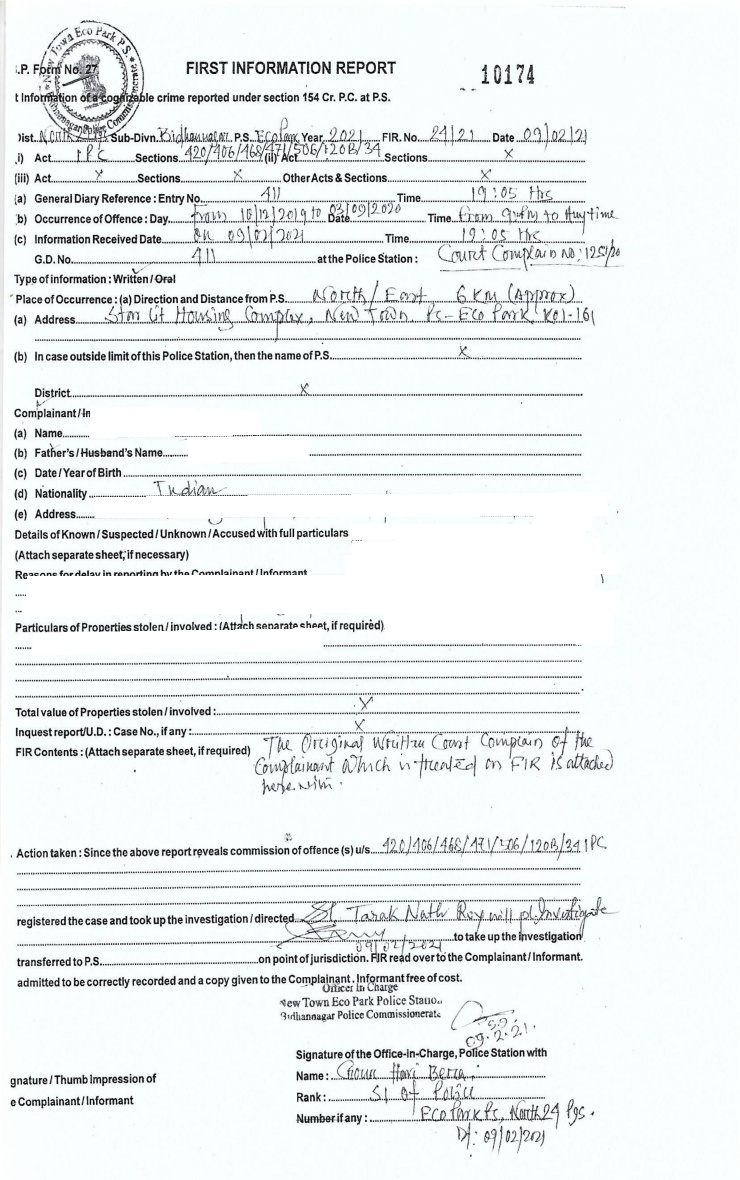 New Town Eco Park P.S.
Bidhannagar Police Commissionerate
.P. Form No. 27
FIRST INFORMATION REPORT
10174
t Information of a cognizable crime reported under section 154 Cr. P.C. at P.S.
Dist. North 24 Sub-Divn. Bidhannagar P.S. Eco Park Year 2021 FIR. No. 24/21 Date 09/02/21
i) Act IPC Sections 420/406/468/471/506/120B/34 (ii) Act Sections X
(iii) Act X Sections X Other Acts & Sections X
(a) General Diary Reference : Entry No. 411 Time 19:05 Hrs
b) Occurrence of Offence : Day From 16/12/2019 to Date 03/09/2020 Time From 9 PM to Any time
(c) Information Received Date on 09/02/2021 Time 19:05 Hrs
G.D. No. 411 at the Police Station : Court Complain no: 125/20
Type of information : Written / Oral
Place of Occurrence : (a) Direction and Distance from P.S. North / East 6 KM (Approx)
(a) Address Star Cit Housing Complex, New Town. Ps- Eco Park Kol-161
(b) In case outside limit of this Police Station, then the name of P.S. X
District X
Complainant / In
(a) Name
(b) Father's / Husband's Name
(c) Date / Year of Birth
(d) Nationality Indian
(e) Address
Details of Known / Suspected / Unknown / Accused with full particulars
(Attach separate sheet, if necessary)
Reasons for delay in reporting by the Complainant / Informant
Particulars of Properties stolen / involved : (Attach separate sheet, if required)
Total value of Properties stolen / involved : X
Inquest report/U.D. : Case No., if any : X
FIR Contents : (Attach separate sheet, if required) The Original Written Court Complain of the
Complainant Which is treated on FIR is attached
here with.
. Action taken : Since the above report reveals commission of offence (s) u/s 420/406/468/471/506/120B/34 IPC
registered the case and took up the investigation / directed SI Tarak Nath Roy will pl. Investigate
09/02/2021 to take up the investigation
transferred to P.S. on point of jurisdiction. FIR read over to the Complainant / Informant.
admitted to be correctly recorded and a copy given to the Complainant. Informant free of cost.
Officer in Charge
New Town Eco Park Police Station
Bidhannagar Police Commissionerate
09.2.21.
Signature of the Office-in-Charge, Police Station with
gnature / Thumb Impression of
Name : Hari Bera
e Complainant / Informant
Rank : SI of Police
Number if any : Eco Park Ps, North 24 Pgs.
Dt: 09/02/2021